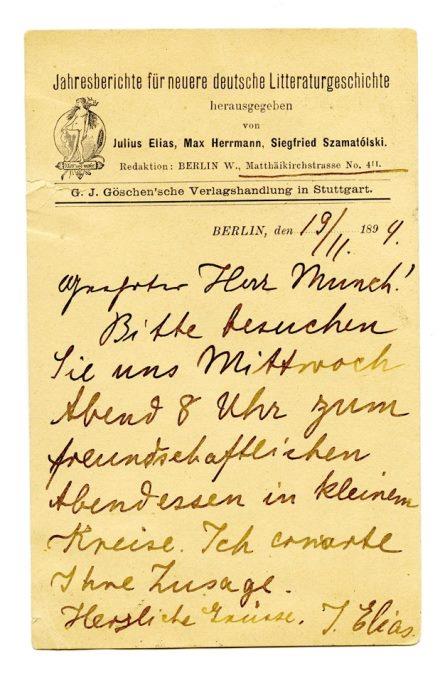 Jahresberichte für neuere deutsche Litteraturgeschichte
herausgegeben
von
Julius Elias, Max Herrmann, Siegfried Szamatólski.
Redaktion: BERLIN W., Matthäikirchstrasse No. 4II.
G. J. Göschen'sche Verlagshandlung in Stuttgart.
BERLIN, den 19/11. 1894.
Geehrter Herr Munch!
Bitte besuchen
Sie uns Mittwoch
Abend 8 Uhr zum
freundschaftlichen
Abendessen in kleinem
Kreise. Ich erwarte
Ihre Zusage.
Herzliche Grüsse. J. Elias.